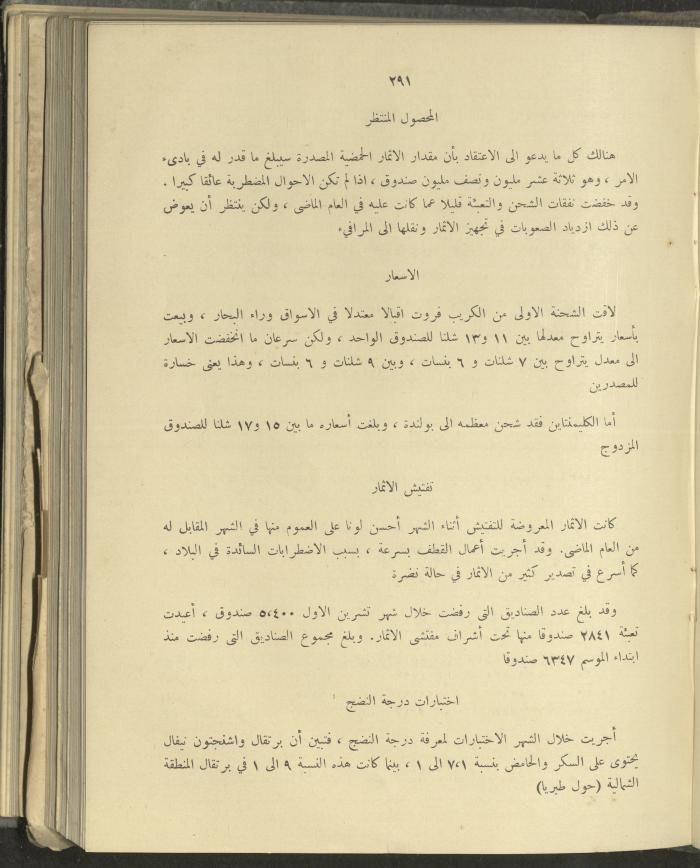 ٢٩١
المحصول المنتظر
هنالك كل ما يدعو الى الاعتقاد بأن مقدار الاثمار الحمضية المصدرة سيبلغ ما قدر له في بادىء
الامر ، وهو ثلاثة عشر مليون ونصف مليون صندوق ، اذا لم تكن الاحوال المضطربة عائقا كبيرا .
وقد خفضت نفقات الشحن والتعبئة قليلا عما كانت عليه في العام الماضى ، ولكن ينتظر أن يعوض
عن ذلك ازدياد الصعوبات في تجهيز الاثمار ونقلها الى المرافىء
الاسعار
لاقت الشحنة الاولى من الكريب فروت اقبالا معتدلا في الاسواق وراء البحار ، وبيعت
بأسعار يتراوح معدلها بين ١١ و١٣ شلنا للصندوق الواحد ، ولكن سرعان ما انخفضت الاسعار
الى معدل يتراوح بين ٧ شلنات و ٦ بنسات ، وبين ٩ شلنات و ٦ بنسات ، وهذا يعنى خسارة
للمصدرين
أما الكليمنتاين فقد شحن معظمه الى بولندة ، وبلغت أسعاره ما بين ١٥ و١٧ شلنا للصندوق
المزدوج
تفتيش الاثمار
كانت الاثمار المعروضة للتفتيش أثناء الشهر أحسن لونا على العموم منها في الشهر المقابل له
من العام الماضى. وقد أجريت أعمال القطف بسرعة ، بسبب الاضطرابات السائدة في البلاد ،
كما أسرع في تصدير كثير من الاثمار في حالة نضرة
وقد بلغ عدد الصناديق التى رفضت خلال شهر تشرين الاول ٥،٤٠٠ صندوق ، أعيدت
تعبئة ٢٨٤١ صندوقا منها تحت أشراف مفتشى الاثمار. وبلغ مجموع الصناديق التى رفضت منذ
ابتداء الموسم ٦٣٤٧ صندوقا
اختبارات درجة النضج
أجريت خلال الشهر الاختبارات لمعرفة درجة النضج ، فتبين أن برتقال واشنجتون نيفال
يحتوى على السكر والحامض بنسبة ٧،١ الى ١ ، بينما كانت هذه النسبة ٩ الى ١ في برتقال المنطقة
الشمالية (حول طبريا)